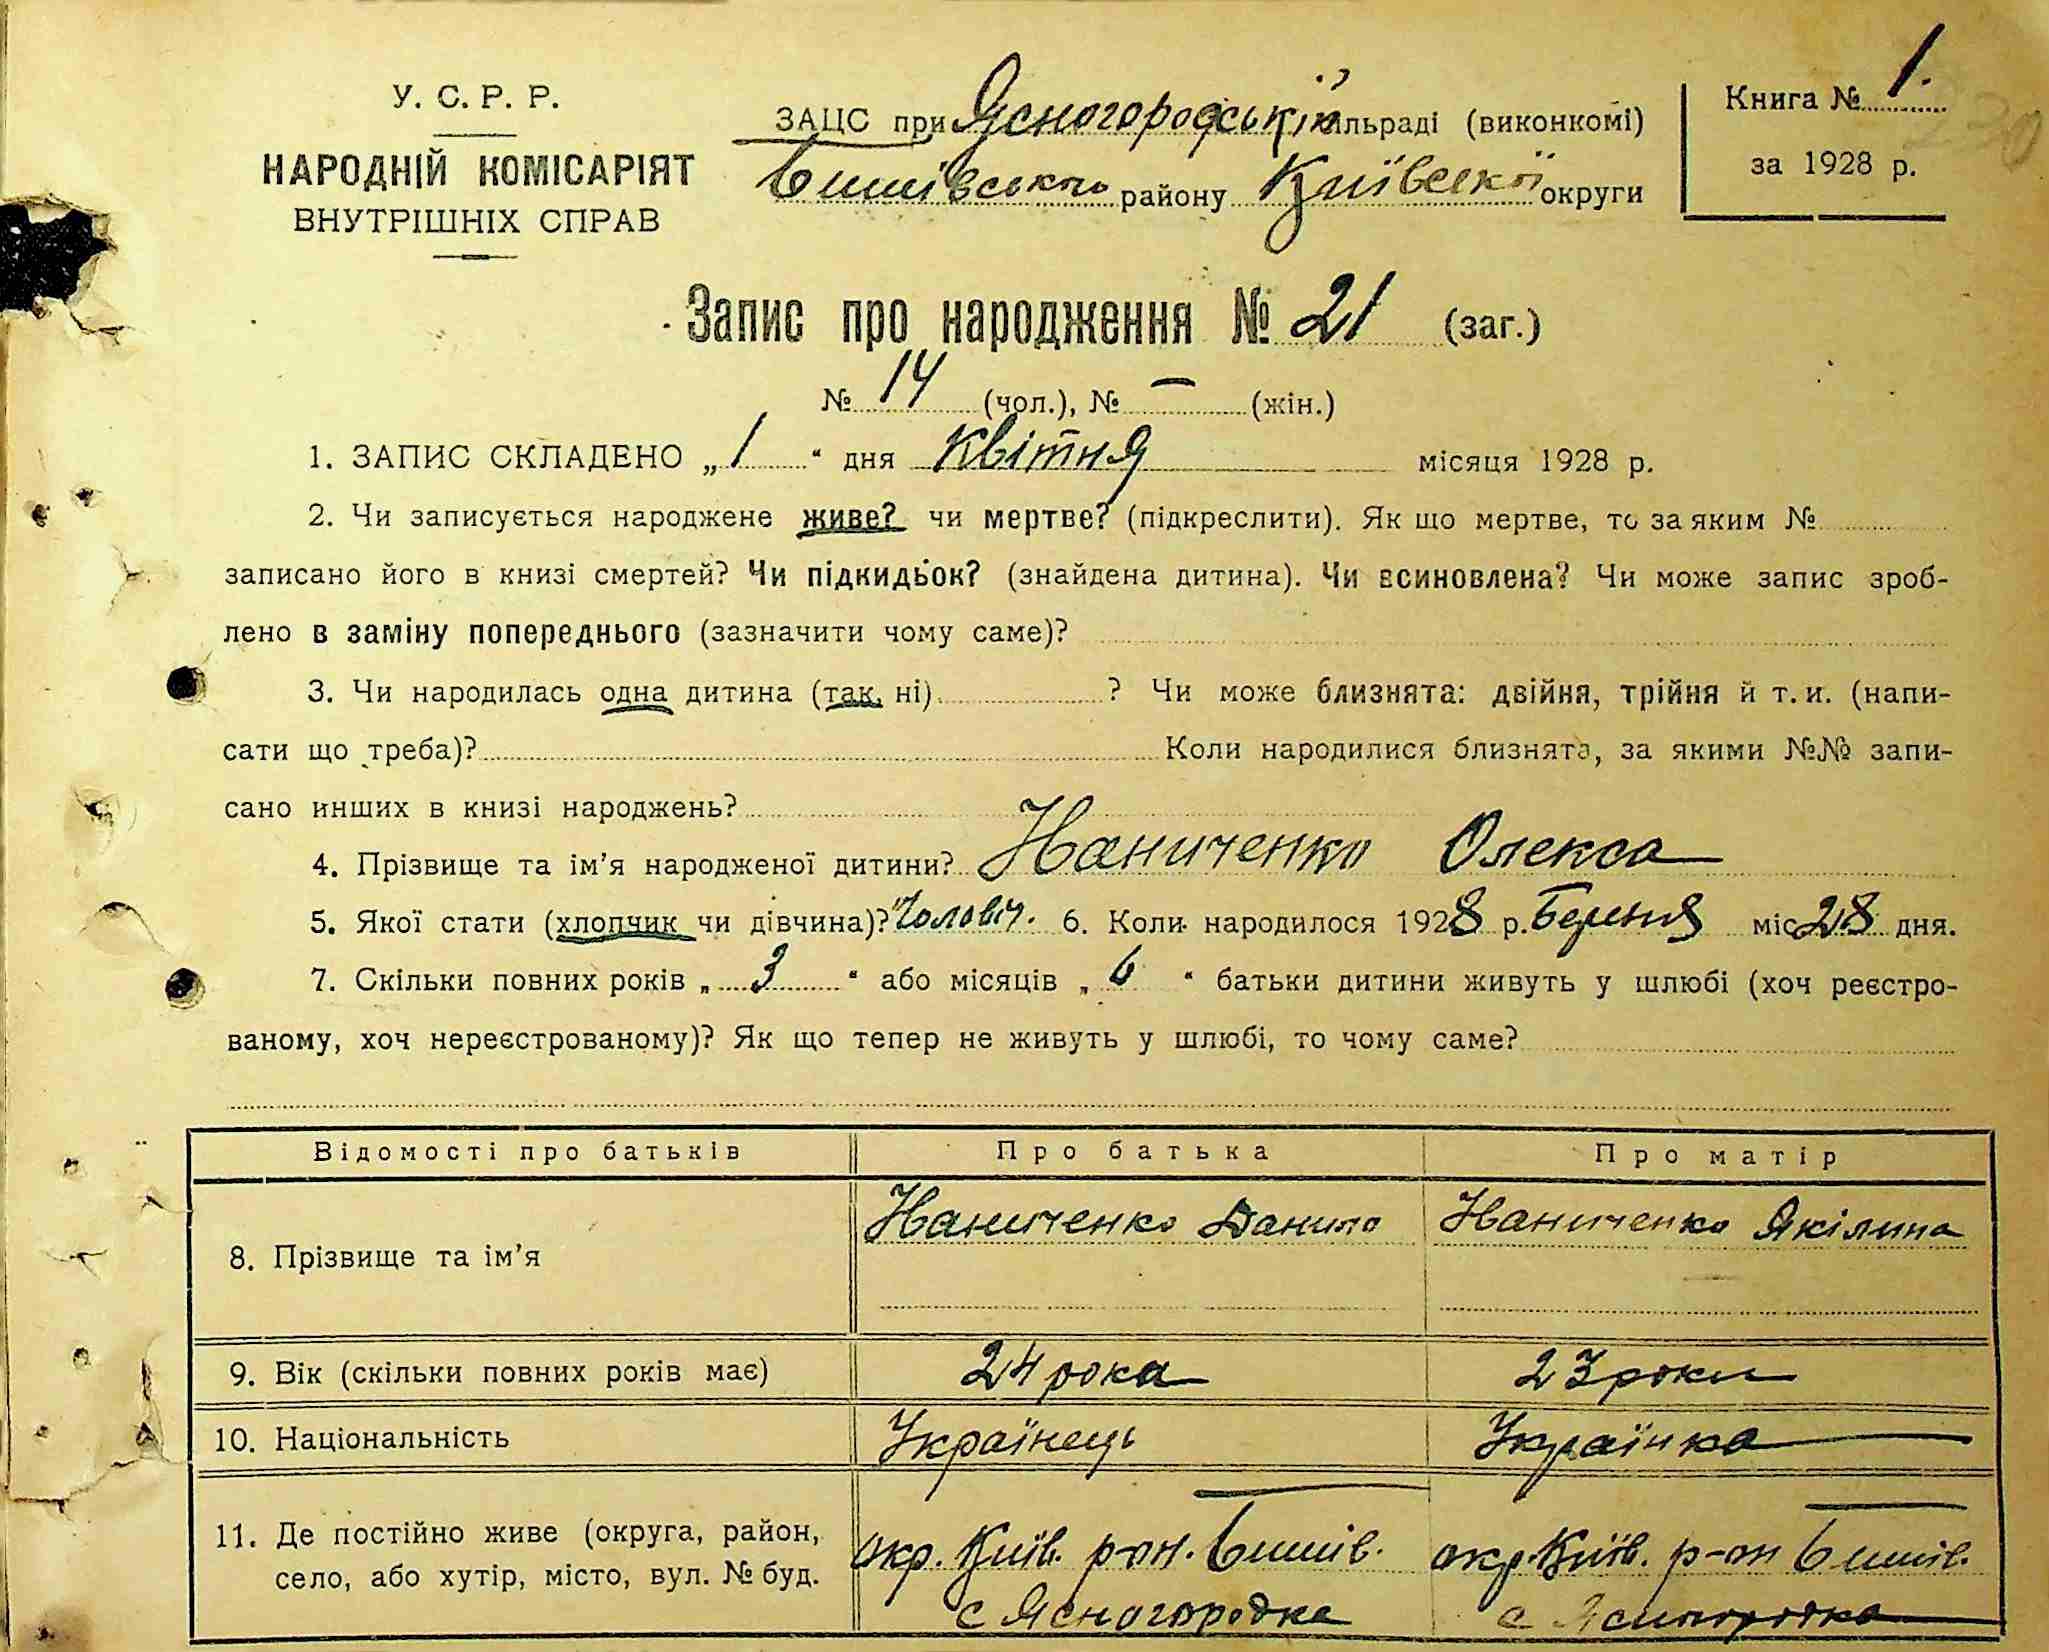 У. С. Р. Р.
НАРОДНІЙ КОМІСАРІЯТ
ВНУТРІШНІХ СПРАВ
ЗАЦС при Ясногородській сільраді (виконкомі)
Бишівського району Київської округи
Книга № 1.
за 1928 р.
Запис про народження № 21 (заг.)
№ 14 (чол.), № — (жін.)
1. ЗАПИС СКЛАДЕНО „1“ дня Квітня місяця 1928 р.
2. Чи записується народжене живе? чи мертве? (підкреслити). Як що мертве, то за яким №
записано його в книзі смертей? Чи підкидьок? (знайдена дитина). Чи всиновлена? Чи може запис зроб-
лено в заміну попереднього (зазначити чому саме)?
3. Чи народилась одна дитина (так, ні) ? Чи може близнята: двійня, трійня й т. и. (напи-
сати що треба)? Коли народилися близнята, за якими №№ запи-
сано инших в книзі народжень?
4. Прізвище та ім’я народженої дитини? Іваниченко Олекса
5. Якої стати (хлопчик чи дівчина)? Чоловіч. 6. Коли народилося 1928 р. Березня міс. 28 дня.
7. Скільки повних років „3“ або місяців „6“ батьки дитини живуть у шлюбі (хоч реєстро-
ваному, хоч нереєстрованому)? Як що тепер не живуть у шлюбі, то чому саме?
Відомості про батьків Про батька Про матір
8. Прізвище та ім’я Іваниченко Данило Іваниченко Якілина
9. Вік (скільки повних років має) 24 рока 23 роки
10. Національність Українець Українка
11. Де постійно живе (округа, район, окр. Київ. р-он. Бишів. окр. Київ. р-он Бишів.
село, або хутір, місто, вул. № буд. с Ясногородка с Ясногородка